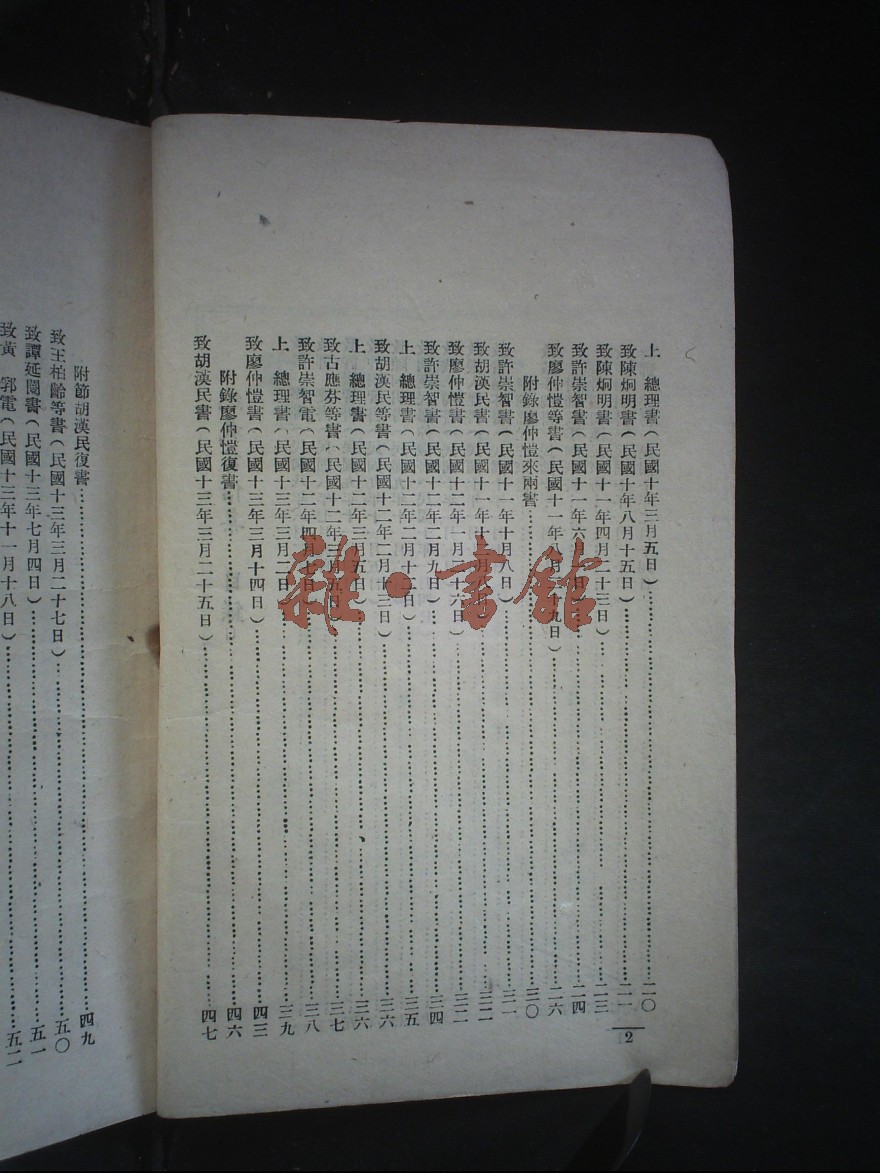 上　總理書（民國十年三月五日）……二〇
致陳炯明書（民國十年八月十五日）……二一
致陳炯明書（民國十一年四月二十三日）……二三
致許崇智書（民國十一年六月　日）……二四
致廖仲愷等書（民國十一年　月　十九日）……二六
附錄廖仲愷來兩書……三〇
致許崇智書（民國十一年十月八日）……三一
致胡漢民書（民國十一年十　月　日）……三二
致廖仲愷書（民國十二年一月十六日）……三二
致許崇智書（民國十二年二月九日）……三四
上　總理書（民國十二年二月十二日）……三五
致胡漢民等書（民國十二年二月十三日）……三六
上　總理書（民國十二年三月五日）……三六
致古應芬等書（民國十二年三月五日）……三七
致許崇智電（民國十二年四月　日）……三八
上　總理書（民國十三年三月二日）……三九
致廖仲愷書（民國十三年三月十四日）……四三
附錄廖仲愷復書……四六
致胡漢民書（民國十三年三月二十五日）……四七
2
附節胡漢民復書……四九
致王柏齡等書（民國十三年三月二十七日）……五〇
致譚延闓書（民國十三年七月四日）……五一
致黃　郛電（民國十三年十一月十八日）……五二
雜·書館